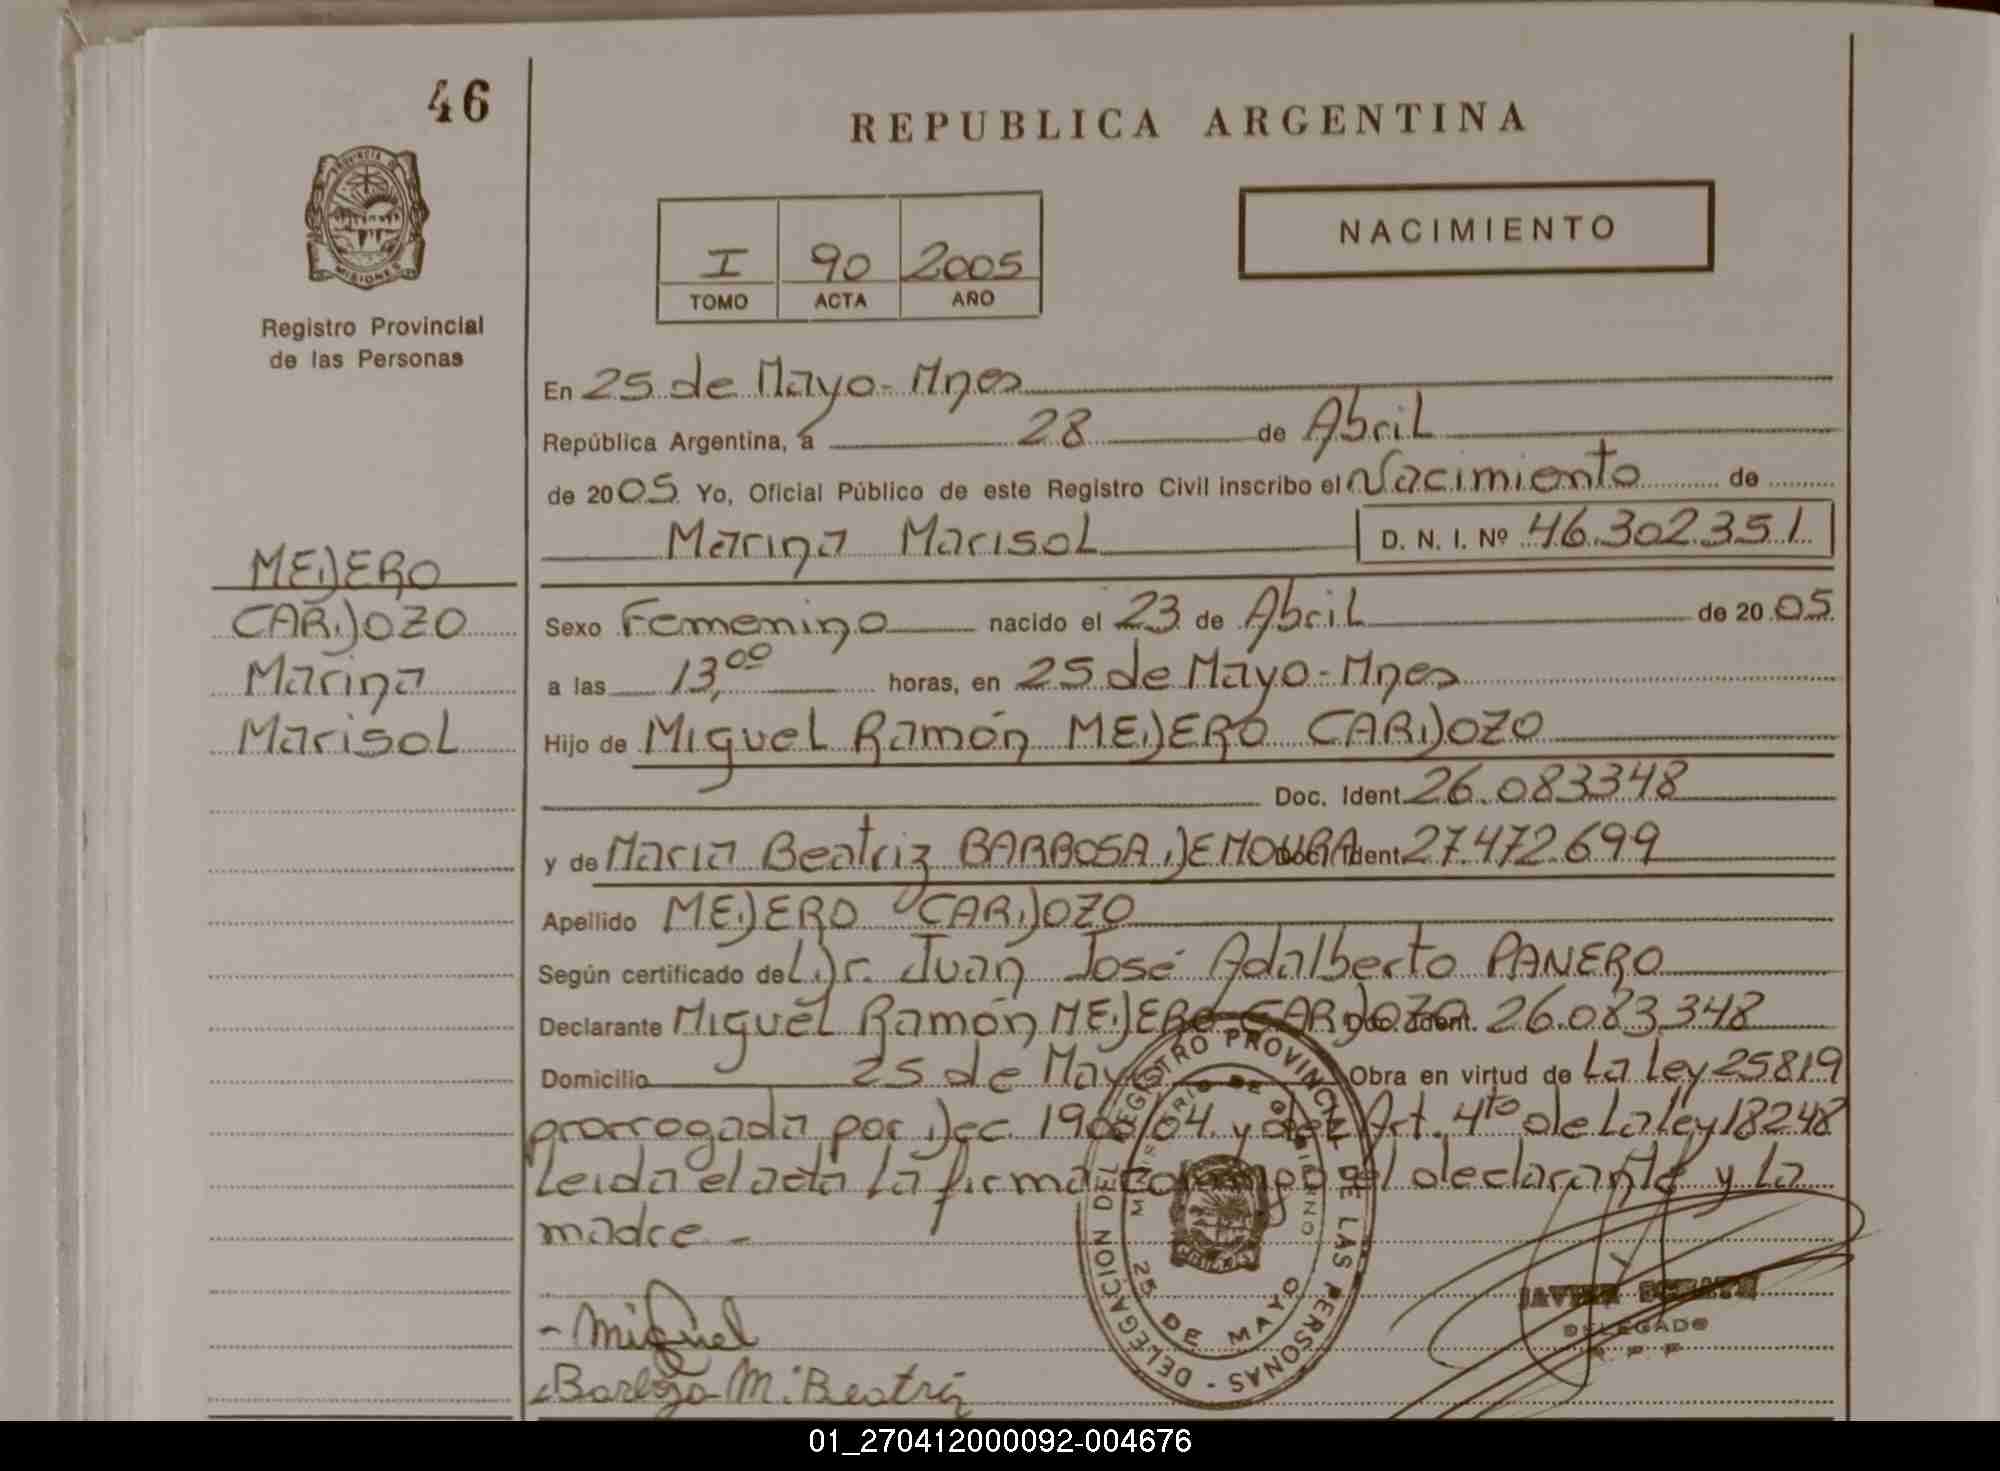 46
REPUBLICA ARGENTINA
PROVINCIA DE
MISIONES
Registro Provincial
de las Personas
I 90 2005
TOMO ACTA AÑO
NACIMIENTO
En 25 de Mayo - Mnes
República Argentina, a 28 de Abril
de 2005 Yo, Oficial Público de este Registro Civil inscribo el Nacimiento de
Marina Marisol D. N. I. Nº 46.302.351
MEDERO
CARDOZO
Marina
Marisol
Sexo Femenino nacido el 23 de Abril de 2005
a las 13,00 horas, en 25 de Mayo - Mnes
Hijo de Miguel Ramón MEDERO CARDOZO
Doc. Ident. 26.083348
y de Maria Beatriz BARBOSA DE MOURA Doc. Ident. 27.472.699
Apellido MEDERO CARDOZO
Según certificado de Dr. Juan José Adalberto PANERO
Declarante Miguel Ramón MEDERO CARDOZO Doc. Ident. 26.083.348
Domicilio 25 de Mayo Obra en virtud de La Ley 25819
prorrogada por Dec. y del Art. 4to de La Ley 18248
Leida el acta La firma conmigo el declarante y La
madre -
DELEGACION DEL REGISTRO PROVINCIAL DE LAS PERSONAS -
MINISTERIO DE GOBIERNO
25 DE MAYO
- Miguel
M. Beatriz
JAVIER
DELEGADO
01_270412000092-004676